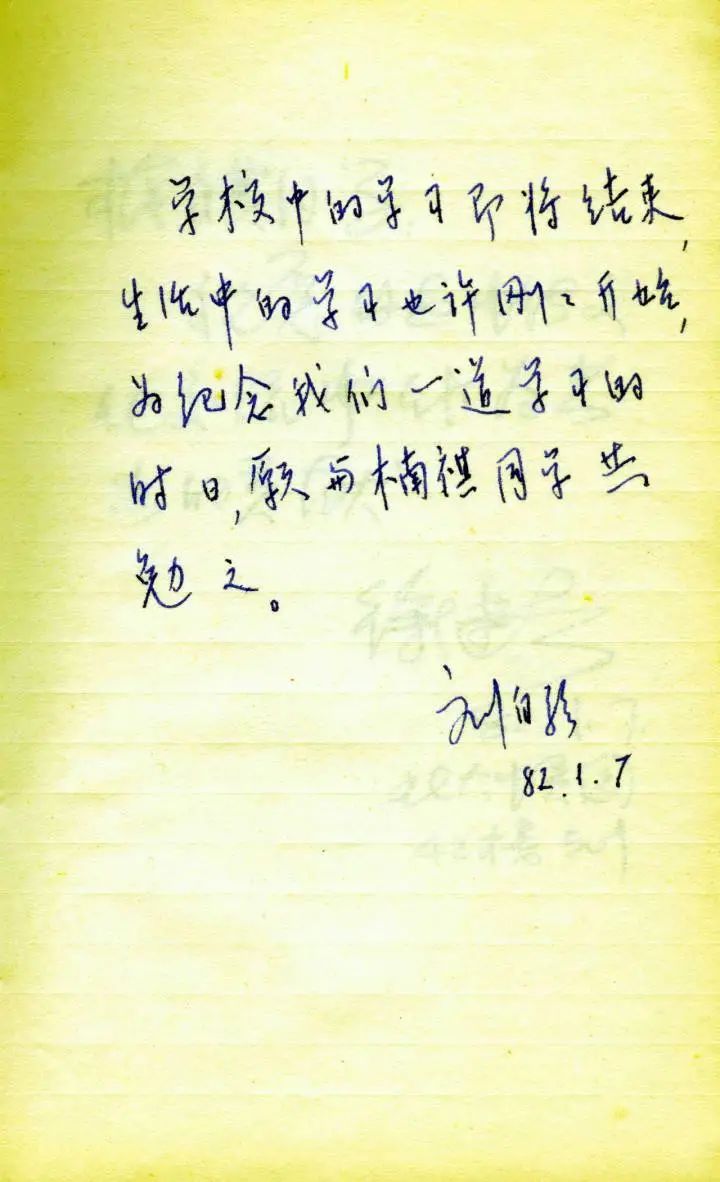 学校中的学习即将结束,
生活中的学习也许刚々开始,
为纪念我们一道学习的
时日,愿与楠祺同学共
勉之。
刘白
82.1.7